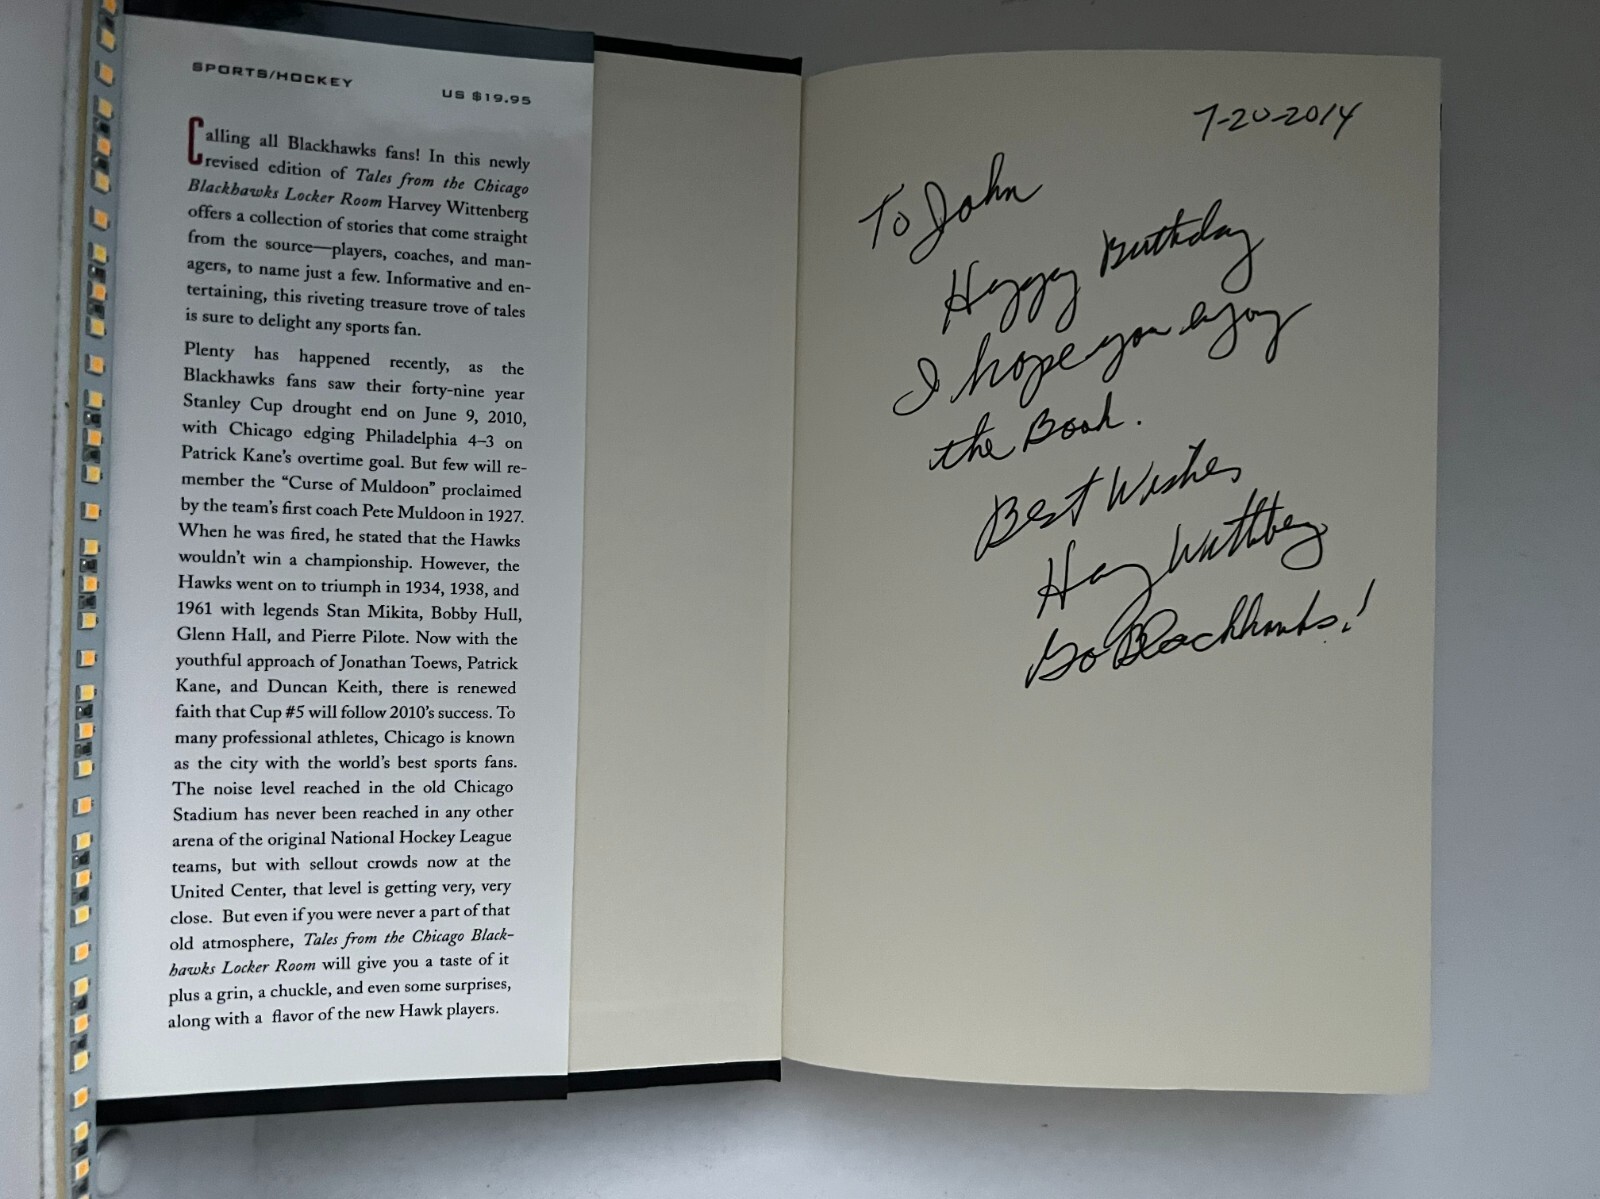 SPORTS/HOCKEY
US $19.95
Calling all Blackhawks fans! In this newly
revised edition of Tales from the Chicago
Blackhawks Locker Room Harvey Wittenberg
offers a collection of stories that come straight
from the source—players, coaches, and man-
agers, to name just a few. Informative and en-
tertaining, this riveting treasure trove of tales
is sure to delight any sports fan.
Plenty has happened recently, as the
Blackhawks fans saw their forty-nine year
Stanley Cup drought end on June 9, 2010,
with Chicago edging Philadelphia 4–3 on
Patrick Kane's overtime goal. But few will re-
member the “Curse of Muldoon” proclaimed
by the team's first coach Pete Muldoon in 1927.
When he was fired, he stated that the Hawks
wouldn't win a championship. However, the
Hawks went on to triumph in 1934, 1938, and
1961 with legends Stan Mikita, Bobby Hull,
Glenn Hall, and Pierre Pilote. Now with the
youthful approach of Jonathan Toews, Patrick
Kane, and Duncan Keith, there is renewed
faith that Cup #5 will follow 2010's success. To
many professional athletes, Chicago is known
as the city with the world's best sports fans.
The noise level reached in the old Chicago
Stadium has never been reached in any other
arena of the original National Hockey League
teams, but with sellout crowds now at the
United Center, that level is getting very, very
close. But even if you were never a part of that
old atmosphere, Tales from the Chicago Black-
hawks Locker Room will give you a taste of it
plus a grin, a chuckle, and even some surprises,
along with a flavor of the new Hawk players.
7-20-2014
To John
Happy Birthday
I hope you enjoy
the Book.
Best Wishes
Harvey Wittenberg
Go Blackhawks!